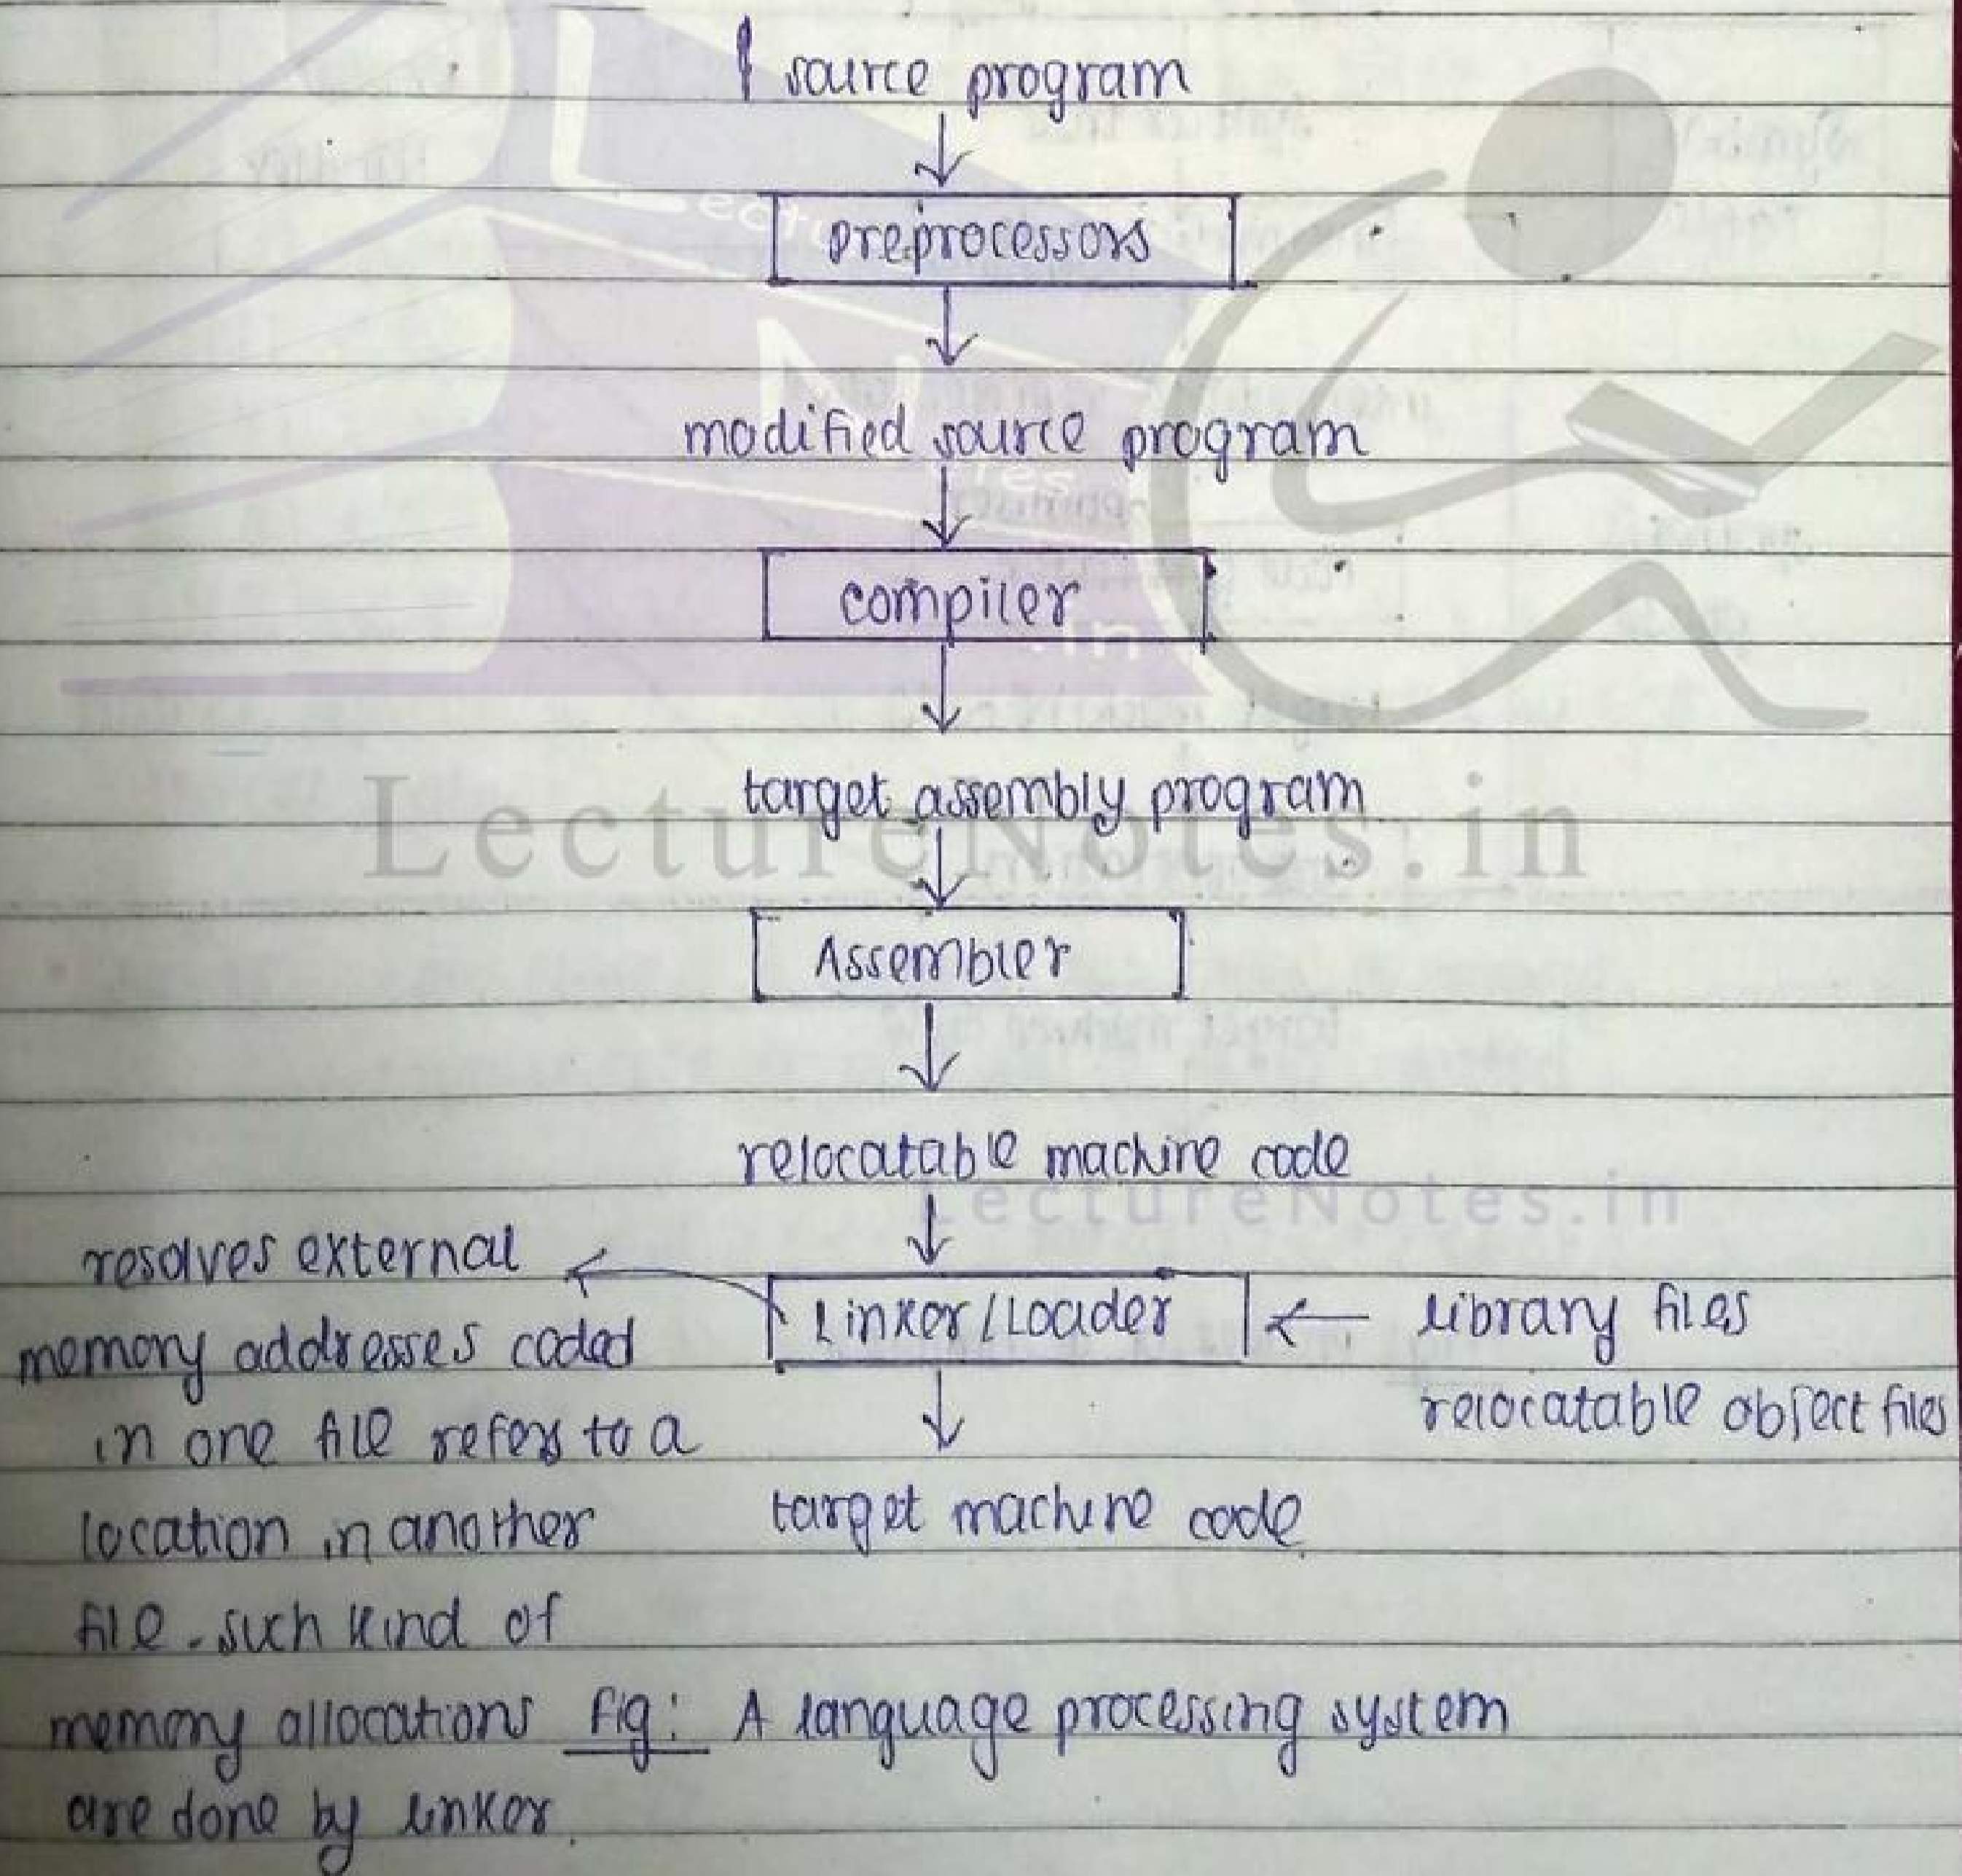 source program
preprocessors
modified source program
compiler
target assembly program
LectureNotes.in
Assembler
relocatable machine code
LectureNotes.in
Linker/Loader
library files
relocatable object files
resolves external
memory addresses coded
in one file refers to a
location in another
file. such kind of
memory allocations
are done by linker.
target machine code
fig: A language processing system